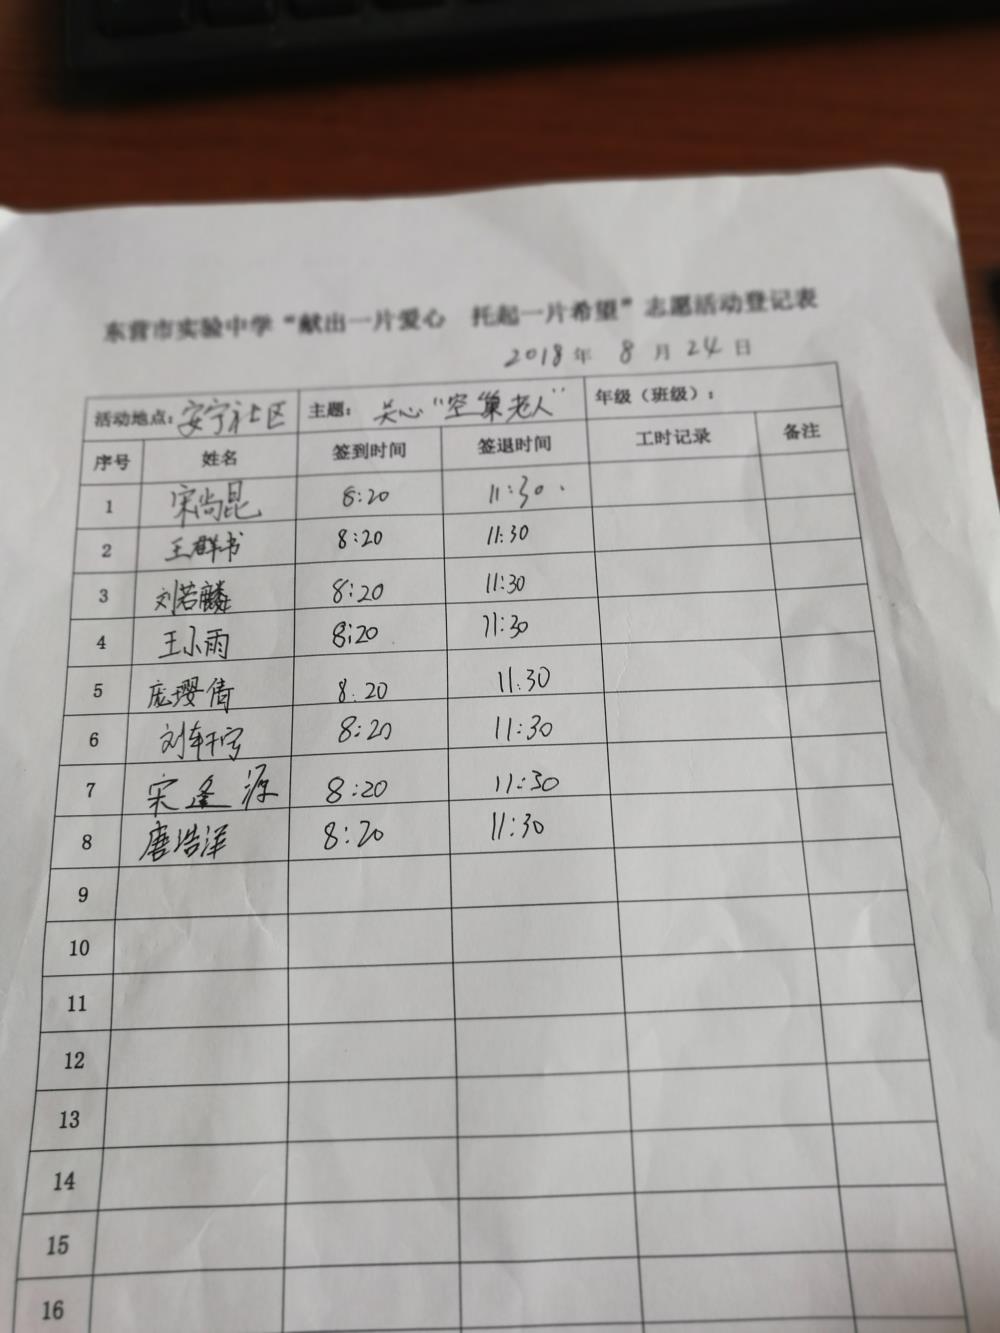 东营市实验中学“献出一片爱心 托起一片希望”志愿活动登记表
2018年 8月 24日
活动地点：安宁社区 主题：关心“空巢老人” 年级（班级）：
序号 姓名 签到时间 签退时间 工时记录 备注
1 宋尚昆 8:20 11:30.
2 王群书 8:20 11:30
3 刘若麟 8:20 11:30
4 王小雨 8:20 11:30
5 庞璎倩 8:20 11:30
6 刘轩宇 8:20 11:30
7 宋逢源 8:20 11:30
8 唐浩洋 8:20 11:30
9
10
11
12
13
14
15
16